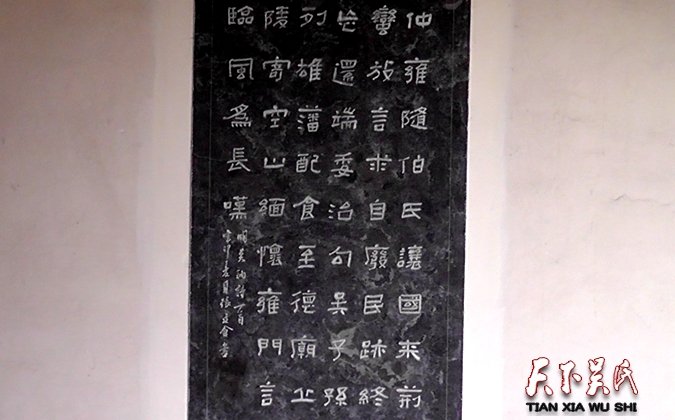 仲雍隨伯氏讓國來荊
蠻放言求自廢民跡終
忘還端委治句吳子孫
列雄藩配食至德廟丘
陵寄空山緬懷雍門言
臨風爲長嘆
明吳訥詩一首
天下吴氏
TIAN XIA WU SHI